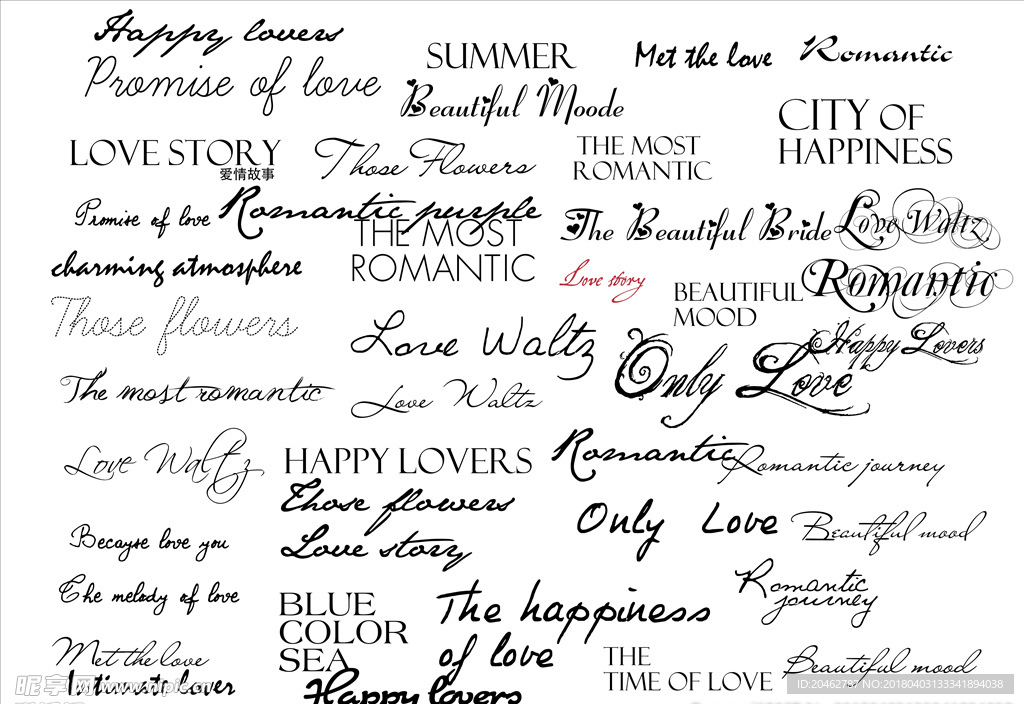 Happy lovers
Promise of love
SUMMER
Beautiful Moode
Met the love
Romantic
CITY OF
HAPPINESS
LOVE STORY
爱情故事
Those Flowers
THE MOST
ROMANTIC
Promise of love
Romantic purple
THE MOST
ROMANTIC
The Beautiful Bride
Love Waltz
charming atmosphere
Love story
BEAUTIFUL
MOOD
Romantic
Those flowers
Love Waltz
Only Love
Happy Lovers
The most romantic
Love Waltz
Love Waltz
HAPPY LOVERS
Romantic
Romantic journey
Those flowers
Love story
Only Love
Beautiful mood
Becayse love you
The melody of love
Romantic
journey
BLUE
COLOR
SEA
The happiness
of love
Met the love
Intimate lover
Happy lovers
THE
TIME OF LOVE
Beautiful mood
昵享网 www.nipic.cn
ID:20462787 NO:20180403133341894038